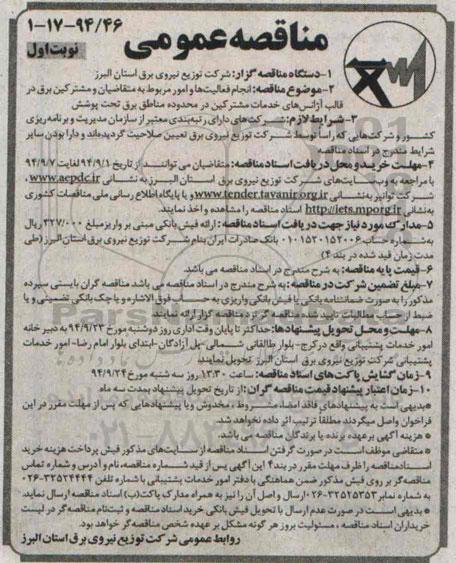 مناقصه عمومی
۱-۱۷-۹۴/۴۶
نوبت اول
۱-دستگاه مناقصه گزار: شرکت توزیع نیروی برق استان البرز
۲-موضوع مناقصه: انجام فعالیت‌ها و امور مربوط به متقاضیان و مشترکین برق در
قالب آژانس‌های خدمات مشترکین در محدوده مناطق برق تحت پوشش
۳-شرایط لازم: شرکت‌های دارای رتبه‌بندی معتبر از سازمان مدیریت و برنامه‌ریزی
کشور و شرکت‌هایی که راساً توسط شرکت توزیع نیروی برق تعیین صلاحیت گردیده‌اند و دارا بودن سایر
شرایط مندرج در اسناد مناقصه
۴-مهلت خرید و محل دریافت اسناد مناقصه: متقاضیان می توانند از تاریخ ۹۴/۹/۱ لغایت ۹۴/۹/۷
با مراجعه به وب سایت‌های شرکت توزیع نیروی برق استان البرز به نشانی www.aepdc.ir،
شرکت توانیر به نشانی www.tender.tavanir.org.ir و یا پایگاه اطلاع رسانی ملی مناقصات کشوری
به نشانی http://iets.mporg.ir اسناد مناقصه را مشاهده و اخذ نمایند.
۵-مدارک مورد نیاز جهت دریافت اسناد مناقصه: ارائه فیش بانکی مبتی بر واریز مبلغ ۳۲۷/۰۰۰ ریال
به شماره حساب ۰۱۰۱۵۲۰۱۵۲۰۰۶ بانک صادرات ایران بنام شرکت توزیع نیروی برق استان البرز (طی
مدت زمان قید شده در بند ۴)
۶-قیمت پایه مناقصه: به شرح مندرج در اسناد مناقصه می باشد.
۷-مبلغ تضمین شرکت در مناقصه: به شرح مندرج در اسناد مناقصه می باشد مناقصه گران بایستی سپرده
مذکور را به صورت ضمانتنامه بانکی یا فیش بانکی واریزی به حساب فوق الاشاره و یا چک بانکی تضمینی و یا
ضبط از حساب مطالبات تایید شده، مناقصه گر نزد مناقصه گزار ارائه نمایند.
۸-مهلت و محل تحویل پیشنهادها: حداکثر تا پایان وقت اداری روز دوشنبه مورخ ۹۴/۹/۲۳ به دبیر خانه
امور خدمات پشتیبانی واقع در کرج- بلوار طالقانی شمالی- پل آزادگان- ابتدای بلوار امام رضا- امور خدمات
پشتیبانی شرکت توزیع نیروی برق استان البرز تحویل نمایند.
۹-زمان گشایش پاکت های اسناد مناقصه: ساعت ۱۲:۳۰ روز سه شنبه مورخ ۹۴/۹/۲۴
۱۰-زمان اعتبار پیشنهاد قیمت مناقصه گران: از تاریخ تحویل پیشنهاد بمدت سه ماه
*بدیهی است به پیشنهادهای فاقد امضاء، مشروط، مخدوش و یا پیشنهادهایی که پس از مهلت مقرر در این
فراخوان واصل میگردند مطلقاً ترتیب اثر داده نخواهد شد.
* هزینه آگهی بر عهده برنده یا برندگان مناقصه می باشد.
* متقاضی موظف است در صورت گرفتن اسناد مناقصه از سایت‌های مذکور فیش پرداخت هزینه خرید
اسناد مناقصه را ظرف مهلت مقرر در بند ۴ این آگهی پس از قید شماره مناقصه، نام و آدرس و شماره تماس
مناقصه گر بر روی فیش مذکور ضمن هماهنگی با دفتر امور خدمات پشتیبانی با شماره تلفن ۳۲۵۲۴۴۴۴-۰۲۶
به شماره نمابر ۳۲۵۲۵۳۵۳-۰۲۶ ارسال و اصل آن را نیز به همراه مدارک پاکت(ب) اسناد مناقصه ارسال نماید.
* بدیهی است در صورت عدم ارسال یا تحویل فیش بانکی خرید اسناد مناقصه و ثبت نام مناقصه گر در لیست
خریداران اسناد مناقصه، مسئولیت بروز هر گونه مشکل بر عهده شخص مناقصه گر خواهد بود.
روابط عمومی شرکت توزیع نیروی برق استان البرز